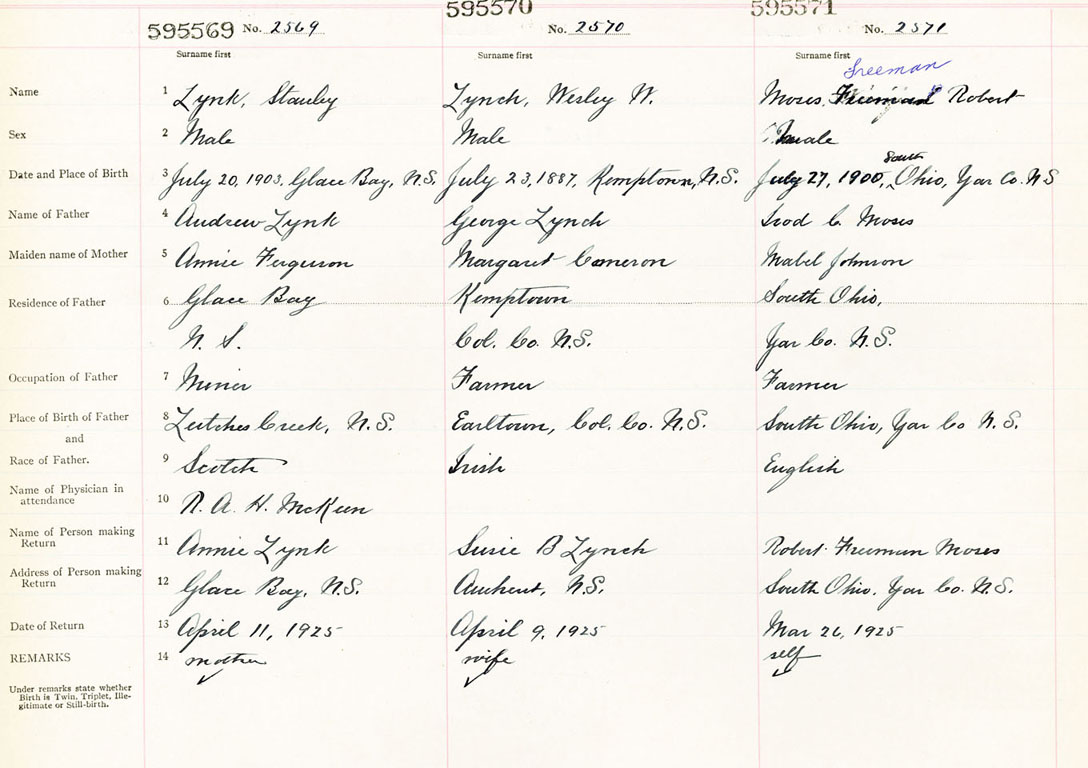 595569 No. 2569 595570 No. 2570 595571 No. 2571
Surname first Surname first Surname first
Freeman
Name 1 Lynk, Stanley Lynch, Wesley W. Moses, Robert
Sex 2 Male Male Male
South
Date and Place of Birth 3 July 20, 1903, Glace Bay, N.S. July 23, 1887, Kemptown, N.S. July 27, 1900, Ohio, Yar Co. N S
Name of Father 4 Andrew Lynk George Lynch C. Moses
Maiden name of Mother 5 Annie Ferguson Margaret Cameron Mabel Johnson
Residence of Father 6 Glace Bay Kemptown South Ohio,
N. S. Col. Co. N.S. Yar Co. N.S.
Occupation of Father 7 Miner Farmer Farmer
Place of Birth of Father 8 Leitches Creek, N.S. Earltown, Col. Co. N.S. South Ohio, Yar Co N.S.
and
Race of Father. 9 Scotch Irish English
Name of Physician in
attendance 10 A. H. McKeen
Name of Person making
Return 11 Annie Lynk Susie B Lynch Robert Freeman Moses
Address of Person making
Return 12 Glace Bay, N.S. Amherst, N.S. South Ohio, Yar Co. N.S.
Date of Return 13 April 11, 1925 April 9, 1925 Mar 26, 1925
REMARKS 14 mother wife self
Under remarks state whether
Birth is Twin, Triplet, Ille-
gitimate or Still-birth.